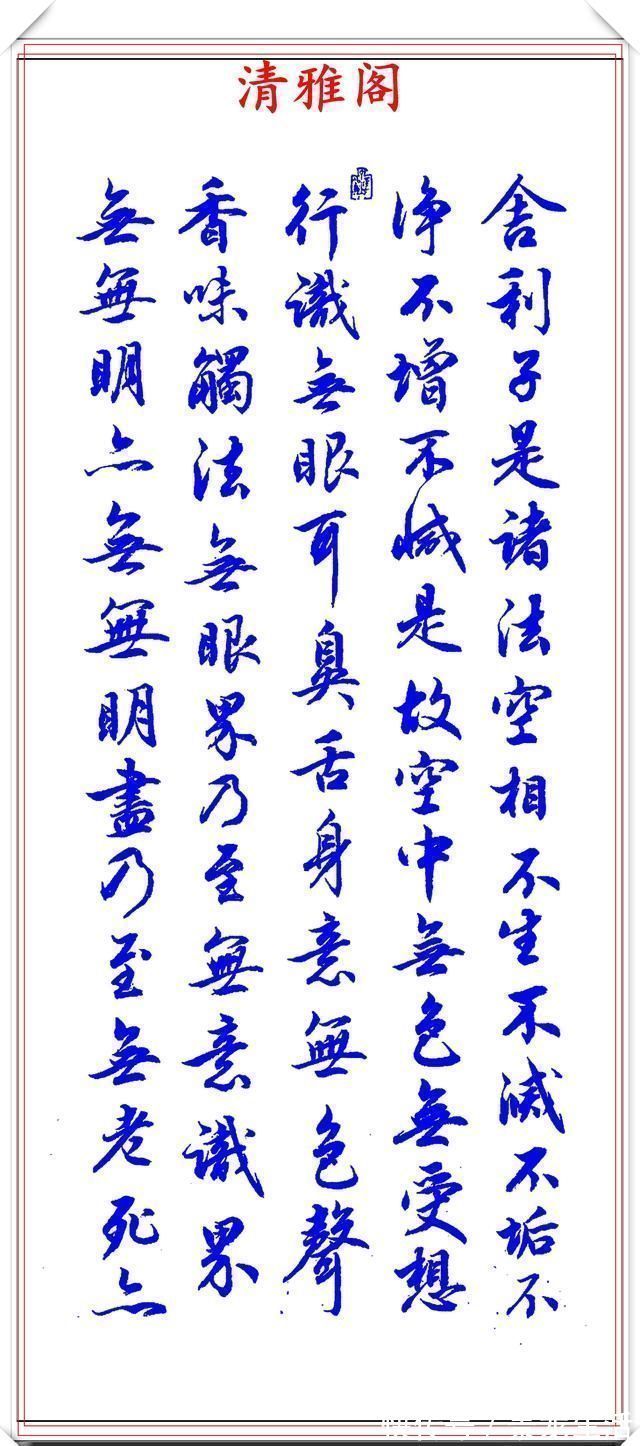 清雅阁
舍利子是诸法空相不生不滅不垢不
净不增不减是故空中無色無受想
行識無眼耳鼻舌身意無色聲
香味觸法無眼界乃至無意識界
無無明亦無無明盡乃至無老死亦